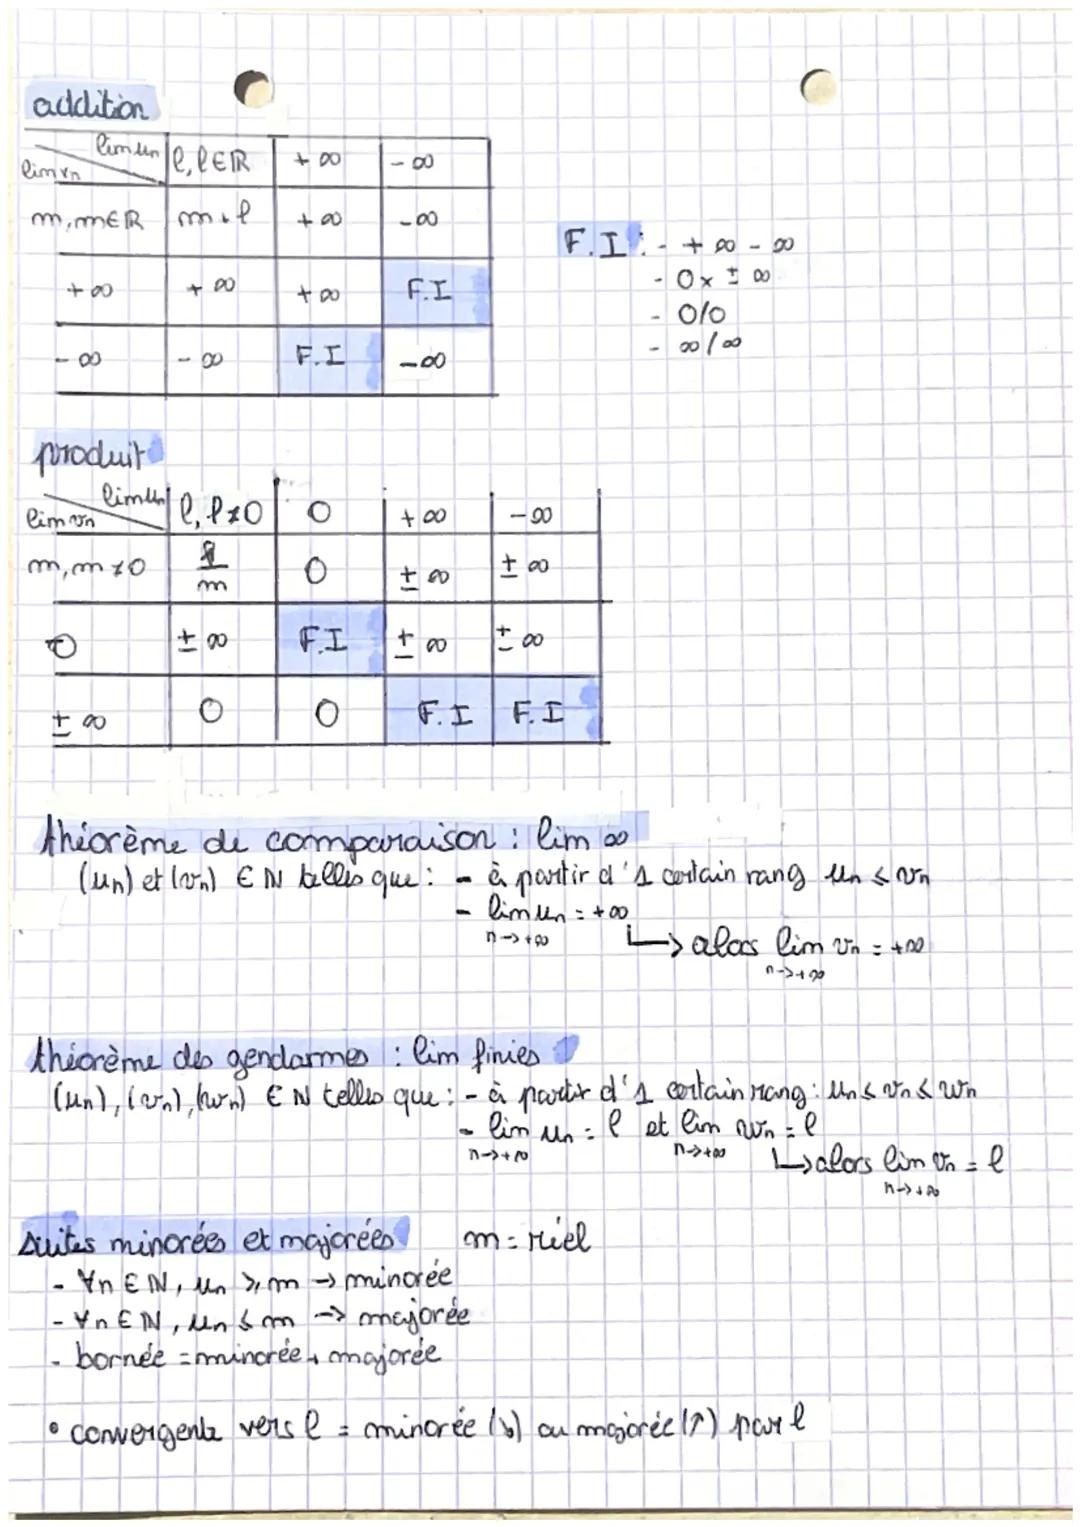 addition
lim un | l, l∈ℝ | +∞ | -∞
lim vn
m, m∈ℝ | m+l | +∞ | -∞
+∞ | +∞ | +∞ | F.I
-∞ | -∞ | F.I | -∞
F.I : - +∞ - ∞
- 0× ±∞
- 0/0
- ∞/∞
produit
lim un | l, l≠0 | 0 | +∞ | -∞
lim vn
m, m≠0 | l/m | 0 | ±∞ | ±∞
0 | ±∞ | F.I | ±∞ | ±∞
±∞ | 0 | 0 | F.I | F.I
théorème de comparaison : lim ∞
(un) et (vn) ∈ ℕ telles que : - à partir d'1 certain rang un ≤ vn
- lim un = +∞
n→+∞
↳ alors lim vn = +∞
n→+∞
théorème des gendarmes : lim finies
(un), (vn), (wn) ∈ ℕ telles que : - à partir d'1 certain rang : un ≤ vn ≤ wn
- lim un = l et lim wn = l
n→+∞ n→+∞
↳ alors lim vn = l
n→+∞
suites minorées et majorées m = réel
- ∀n ∈ ℕ, un ≥ m → minorée
- ∀n ∈ ℕ, un ≤ m → majorée
- bornée = minorée + majorée
• convergente vers l = minorée (↘) ou majorée (↗) par l